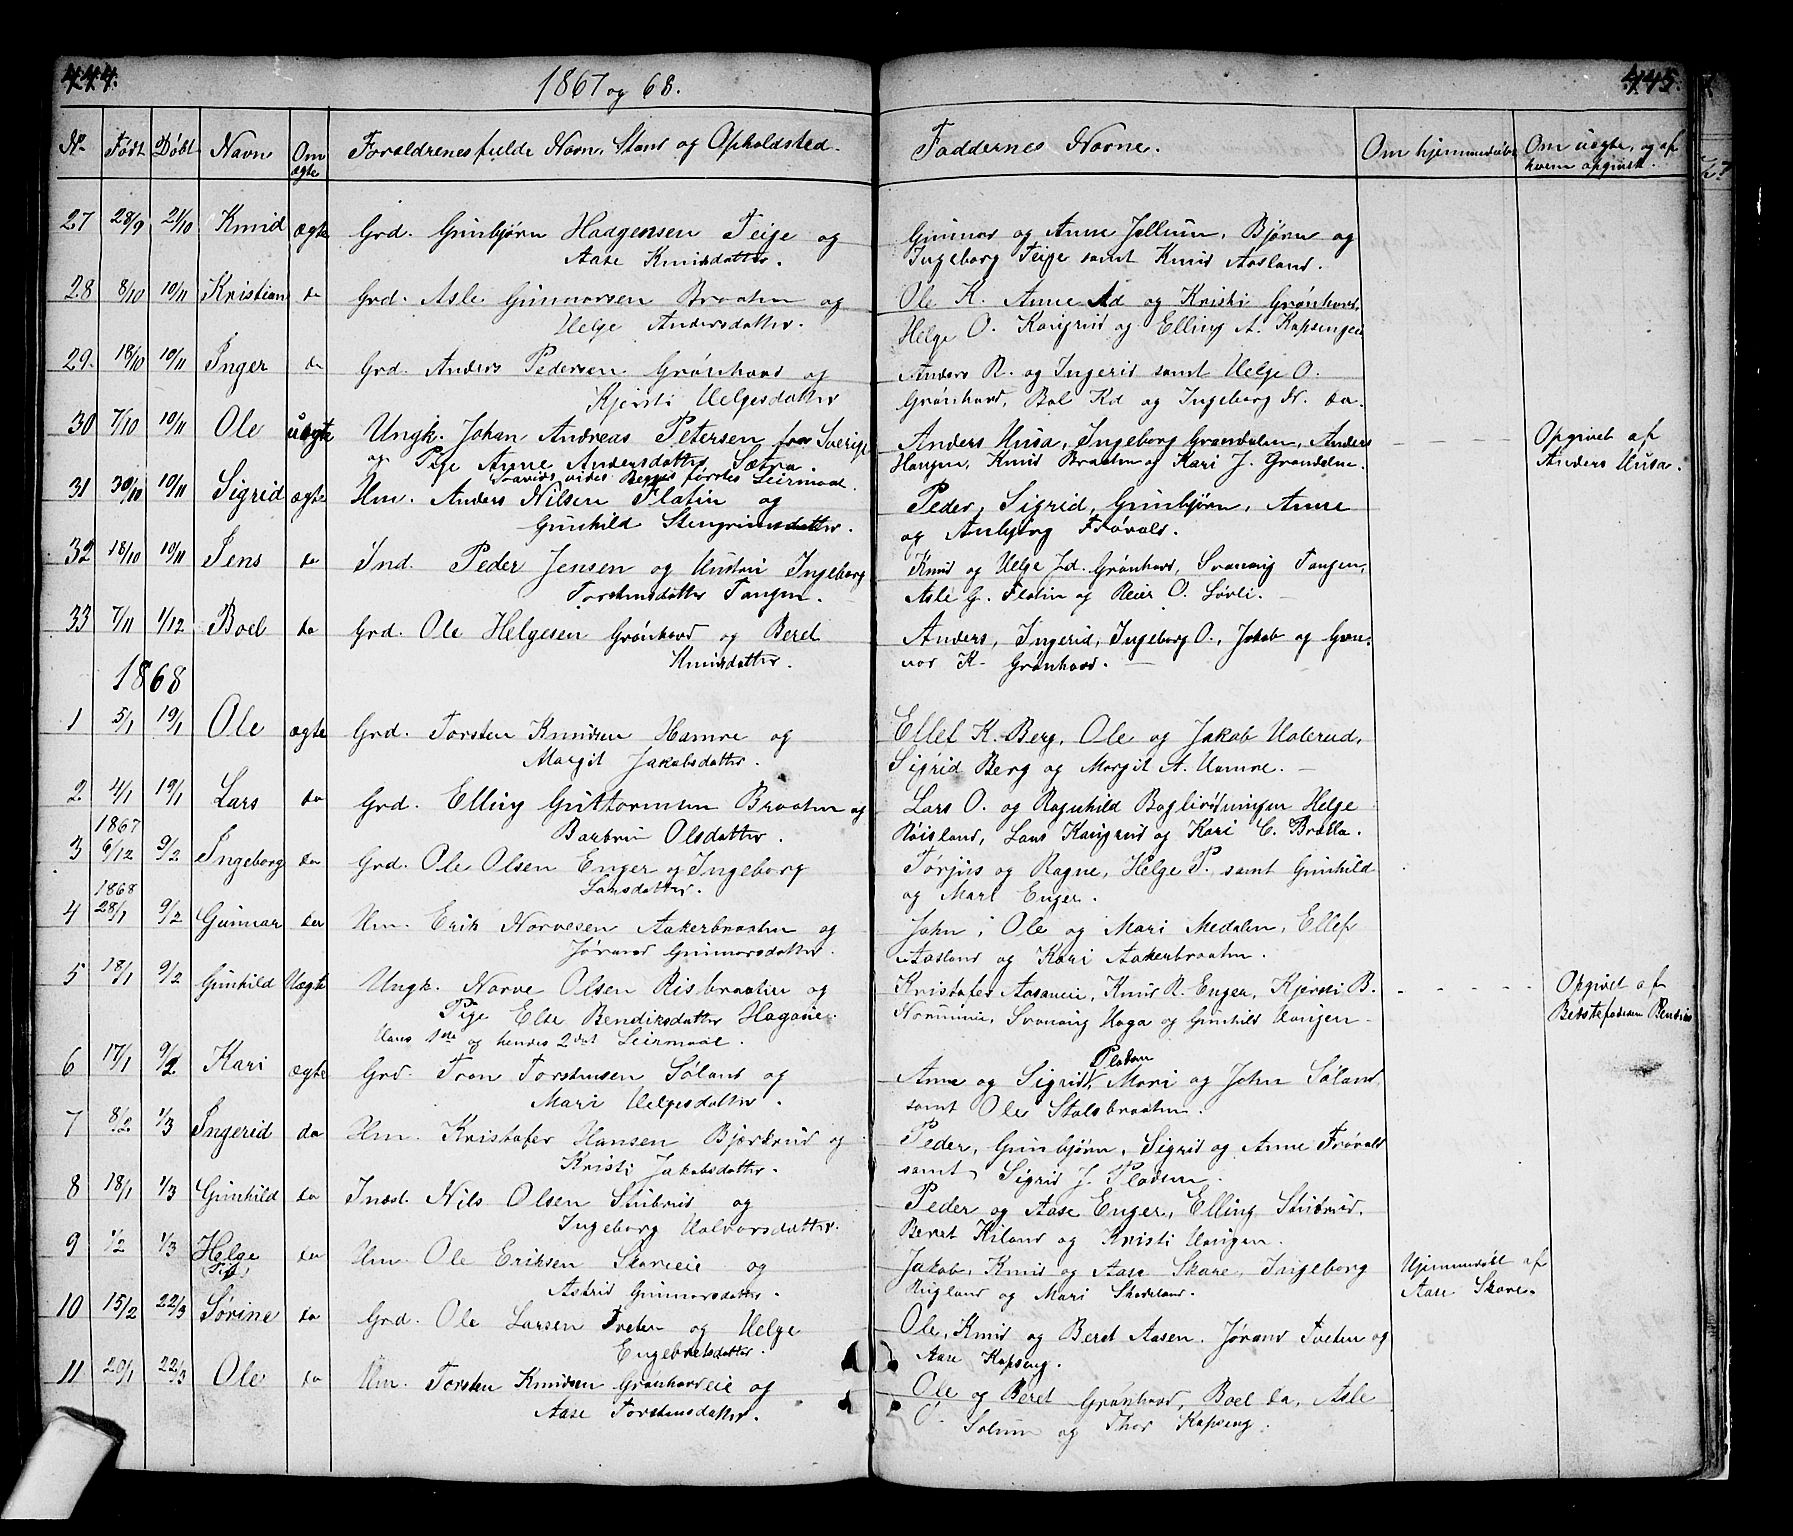 444.
1867 og 68.
445.
No Født Døbt Navn Om ægte Forældrenes fulde Navn, Stand og Opholdsted. Faddernes Navne. Om hjemmedøbt Om uægte, og af hvem opgivet.
27 28/9 21/10 Knud ægte Grd. Gunbjørn Haagensen Teige og Gunnar og Anne Jellum, Bjørn og
Aase Knudsdatter. Ingeborg Teige samt Knud Aasland.
28 8/10 10/11 Kristian do Grd. Asle Gunnarsen Braaten og Ole K. Anne Ad og Kristi Grønhovd,
Helge Andersdatter. Helge O. Kaugerud og Elling A. Kapsengen
29. 18/10 10/11 Inger do Grd. Anders Pedersen Grønhovd og Anders R. og Ingerid samt Helge O.
Kjersti Helgesdatter Grønhovd, Bol Kd og Ingeborg N. do.
30 7/10 10/11 Ole uægte Ungk. Johan Andreas Petersen fra Sverige Anders Husa, Ingeborg Grandalen, Anders Opgivet af
og Pige Anne Andersdatter Sætra. Haugen, Knud Braaten og Kari J. Grandalen. Anders Husa.
Begges første Leiermaal.
31 30/10 10/11 Sigrid ægte Hm. Anders Nilsen Flatin og Peder, Sigrid, Gunbjørn, Anne
Gunhild Stengrimsdatter. og Anbjørg Frøvold.
32 18/10 10/11 Jens do Ind. Peder Jensen og Hustru Ingeborg Knud og Helge Jd. Grønhovd, Svanaug Tangen,
Torstensdatter Tangen. Asle G. Flatin og Reier O. Løvli.
33 7/11 1/12 Boel do Grd. Ole Helgesen Grønhovd og Beret Anders, Ingerid, Ingeborg O., Jakob og Gun-
Knudsdatter. vor K. Grønhovd.
1868
1 5/1 19/1 Ole ægte Grd. Torsten Knudsen Hamre og Ellef K. Berg, Ole og Jakob Holerud,
Margit Jakobsdatter. Sigrid Berg og Margit A. Hamre.
2. 4/1 19/1 Lars do Grd. Elling Guttormsen Braaten og Lars O. og Ragnhild Bagbrødningen Helge
Barbru Olsdatter. Røisland, Lars Kaugerud og Kari C. Bratla.
1867
3 6/12 9/2 Ingeborg do Grd. Ole Olsen Enger og Ingeborg Torjus og Ragne, Helge P. samt Gunhild
Larsdatter. og Mari Enger.
1868
4 28/1 9/2 Gunnar do Hm. Erik Norvesen Aakerbraaten og John, Ole og Mari Medalen, Ellef
Jørand Gunnarsdatter. Aasland og Kari Aakerbraaten.
5 18/1 9/2 Gunhild Uægte Ungk. Norve Olsen Risbraaten og Kristofer Aasaneie, Knud R. Enger, Kjersti B. Opgivet af
Pige Else Bendiksdatter Hagaeie. Svanaug Haga og Gunhild Haugen. Bedstefaderen
Hans 1ste og hendes 2det Leiermaal.
6 17/1 9/2 Kari ægte Grd. Tron Torstensen Søland og Anne og Sigrid Pladsen, Mari og John Søland
Mari Helgesdatter. samt Ole Stolsbraaten.
7 8/2 1/3 Ingerid do Hm. Kristofer Hansen Bjørkrud og Peder, Gunbjørn, Sigrid og Anne Frøvold
Kristi Jakobsdatter. samt Sigrid J. Pladsen.
8 18/1 1/3 Gunhild do Inds. Nils Olsen Stubrud og Peder og Aase Enger, Elling Stubrud,
Ingeborg Halvorsdatter. Beret Kiland og Kristi Haugen.
9 1/2 1/3 Helge do Hm. Ole Eriksen Skareeie og Jakob, Knud og Aase Skare, Ingeborg Hjemmedøbt af
(Pige) Astrid Gunnarsdatter. Rugland og Mari Skadeland. Aase Skare.
10 15/2 22/3 Sørine do Grd. Ole Larsen Tveten og Helge Ole, Knud og Beret Aasen, Jørand Tveten og
Engebretsdatter. Aase Kapseng.
11 20/1 22/3 Ole do Hm. Torsten Knudsen Grønhovdeie og Ole og Beret Grønhovd, Boel do, Asle
Aase Torstensdatter. O. Solum og Thor Kapseng.